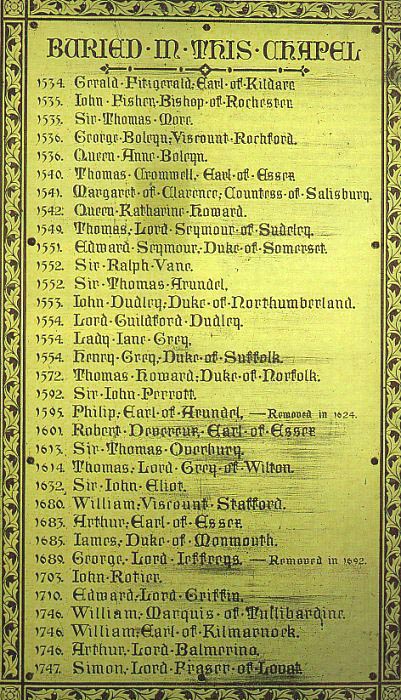 BURIED·IN·THIS·CHAPEL
1534. Gerald·Fitzgerald; Earl·of·Kildare
1535. John·Fisher; Bishop·of·Rochester
1535. Sir·Thomas·More.
1536. George·Boleyn; Viscount·Rochford.
1536. Queen·Anne·Boleyn.
1540. Thomas·Cromwell, Earl·of·Essex
1541. Margaret·of·Clarence; Countess·of·Salisbury.
1542. Queen·Katharine·Howard.
1549. Thomas; Lord·Seymour·of·Sudeley.
1551. Edward·Seymour; Duke·of·Somerset.
1552. Sir·Ralph·Vane.
1552. Sir·Thomas·Arundel.
1553. John·Dudley; Duke·of·Northumberland.
1554. Lord·Guildford·Dudley.
1554. Lady·Jane·Grey.
1554. Henry·Grey; Duke·of·Suffolk.
1572. Thomas·Howard; Duke·of·Norfolk.
1592. Sir·John·Perrott.
1595. Philip; Earl·of·Arundel. — Removed in 1624.
1601. Robert·Devereux, Earl·of·Essex
1613. Sir·Thomas·Overbury.
1614. Thomas; Lord·Grey·of·Wilton.
1632. Sir·John·Eliot.
1680. William; Viscount·Stafford.
1683. Arthur; Earl·of·Essex.
1685. James; Duke·of·Monmouth.
1689. George, Lord·Jeffreys. — Removed in 1692.
1703. John·Rotier.
1710. Edward; Lord·Griffin.
1746. William; Marquis·of·Tullibardine.
1746. William; Earl·of·Kilmarnock.
1746. Arthur; Lord·Balmerino.
1747. Simon, Lord·Fraser·of·Lovat.